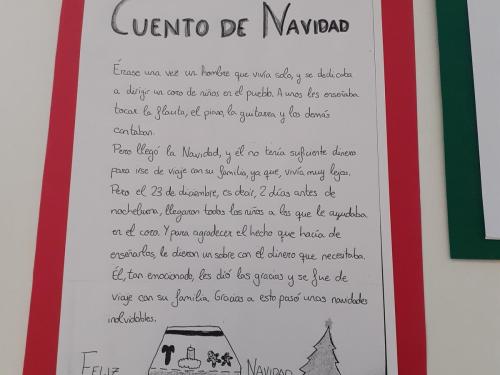 CUENTO DE NAVIDAD
Érase una vez un hombre que vivía solo, y se dedicaba
a dirigir un coro de niños en el pueblo. A unos les enseñaba
tocar la flauta, el piano, la guitarra y los demás
cantaban.
Pero llegó la Navidad, y él no tenía suficiente dinero
para irse de viaje con su familia, ya que, vivía muy lejos.
Pero el 23 de diciembre, es decir, 2 días antes de
nochebuena, llegaron todos los niños a los que le ayudaba
en el coro. Y para agradecer el hecho que hacía de
enseñarlos, le dieron un sobre con el dinero que necesitaba.
Él, tan emocionado, les dió las gracias y se fue de
viaje con su familia. Gracias a esto pasó unas navidades
inolvidables.
FELIZ NAVIDAD